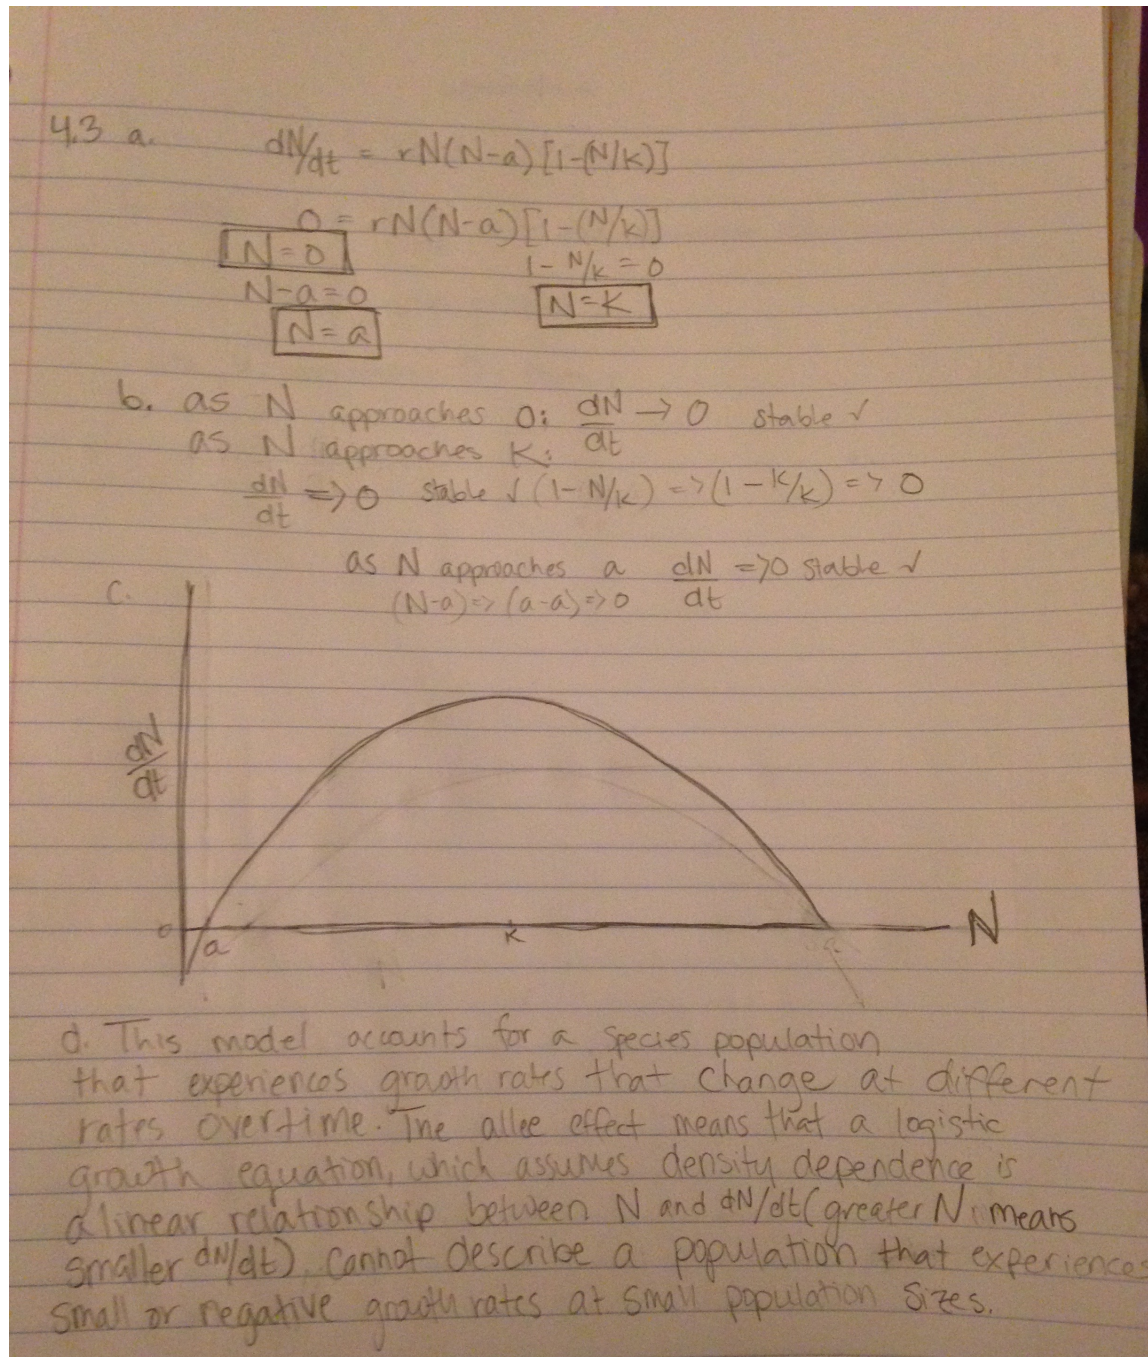 4.3 a. dN/dt = rN(N-a)[1-(N/K)]
0 = rN(N-a)[1-(N/K)]
N=0
1-N/K=0
N-a=0
N=K
N=a
b. as N approaches 0: dN/dt → 0 stable ✓
as N approaches K:
dN/dt => 0 stable ✓ (1-N/K) => (1-K/K) => 0
as N approaches a dN/dt => 0 stable ✓
(N-a) => (a-a) => 0
c.
dN/dt
0 a K N
d. This model accounts for a species population
that experiences growth rates that change at different
rates overtime. The allee effect means that a logistic
growth equation, which assumes density dependence is
a linear relationship between N and dN/dt (greater N means
smaller dN/dt), cannot describe a population that experiences
small or negative growth rates at small population sizes.